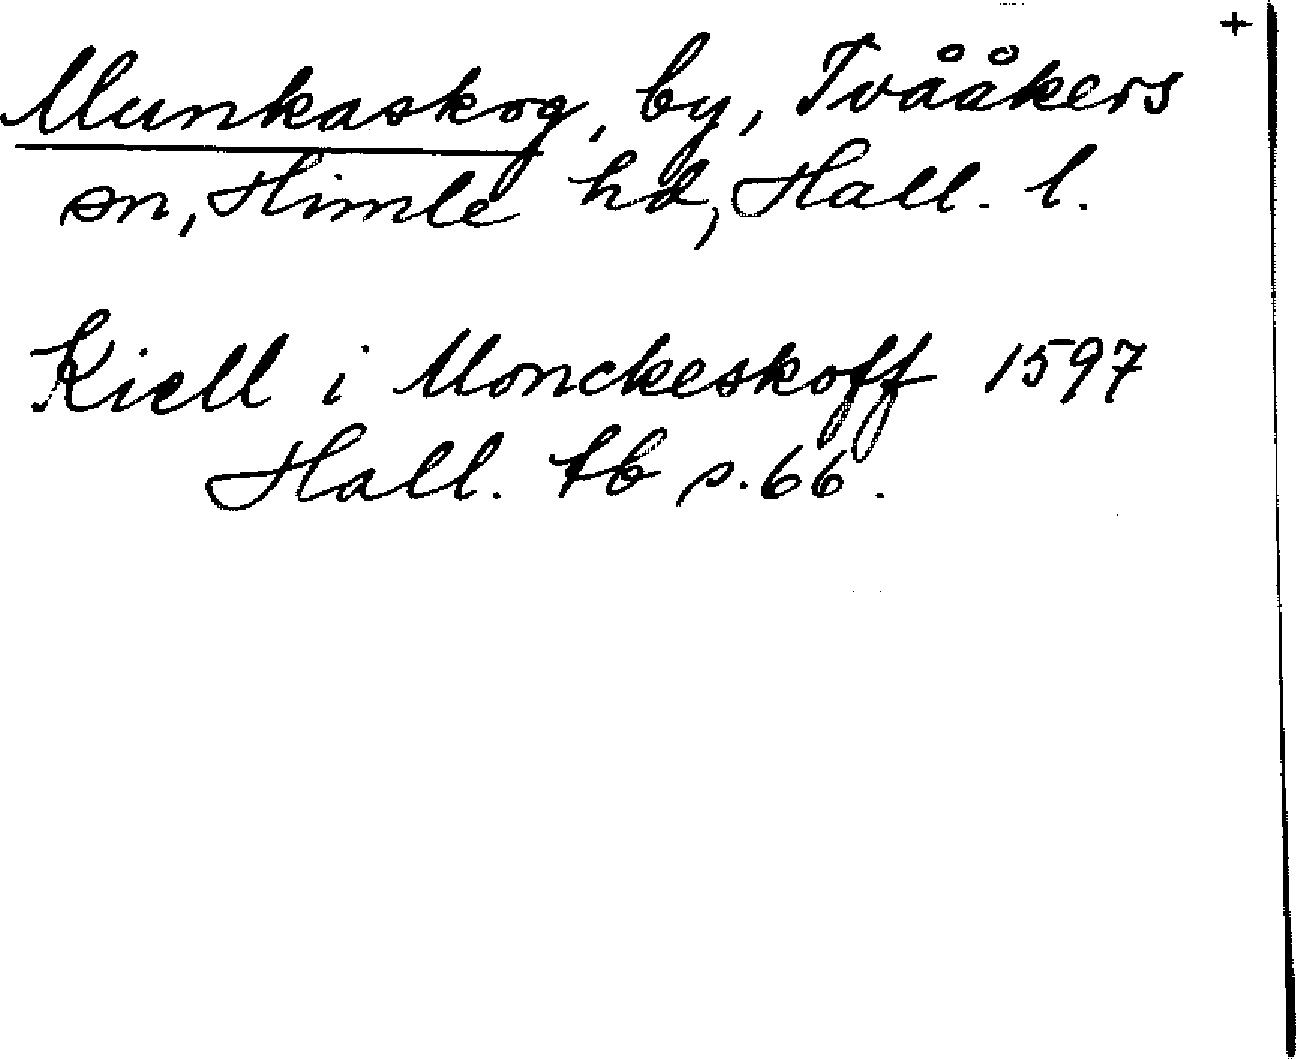 +
Munkaskog, by, Tvååkers
sn, Himle hd, Hall. l.
Kiell i Monckeskoff 1597
Hall. tb s. 66.